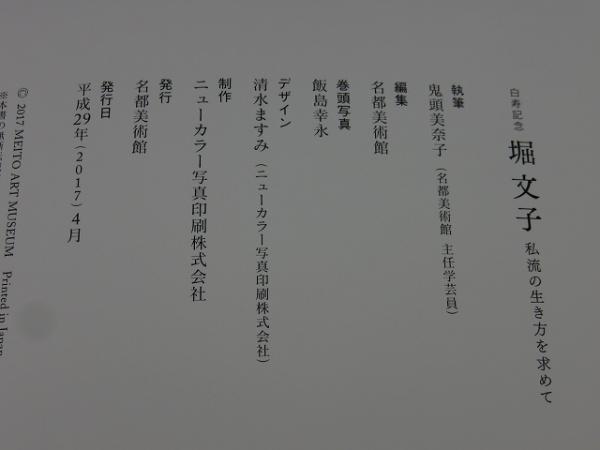 白寿記念 堀 文子 私流の生き方を求めて
執筆
鬼頭美奈子（名都美術館 主任学芸員）
編集
名都美術館
巻頭写真
飯島幸永
デザイン
清水ますみ（ニューカラー写真印刷株式会社）
制作
ニューカラー写真印刷株式会社
発行
名都美術館
発行日
平成29年（2017）4月
© 2017 MEITO ART MUSEUM Printed in Japan